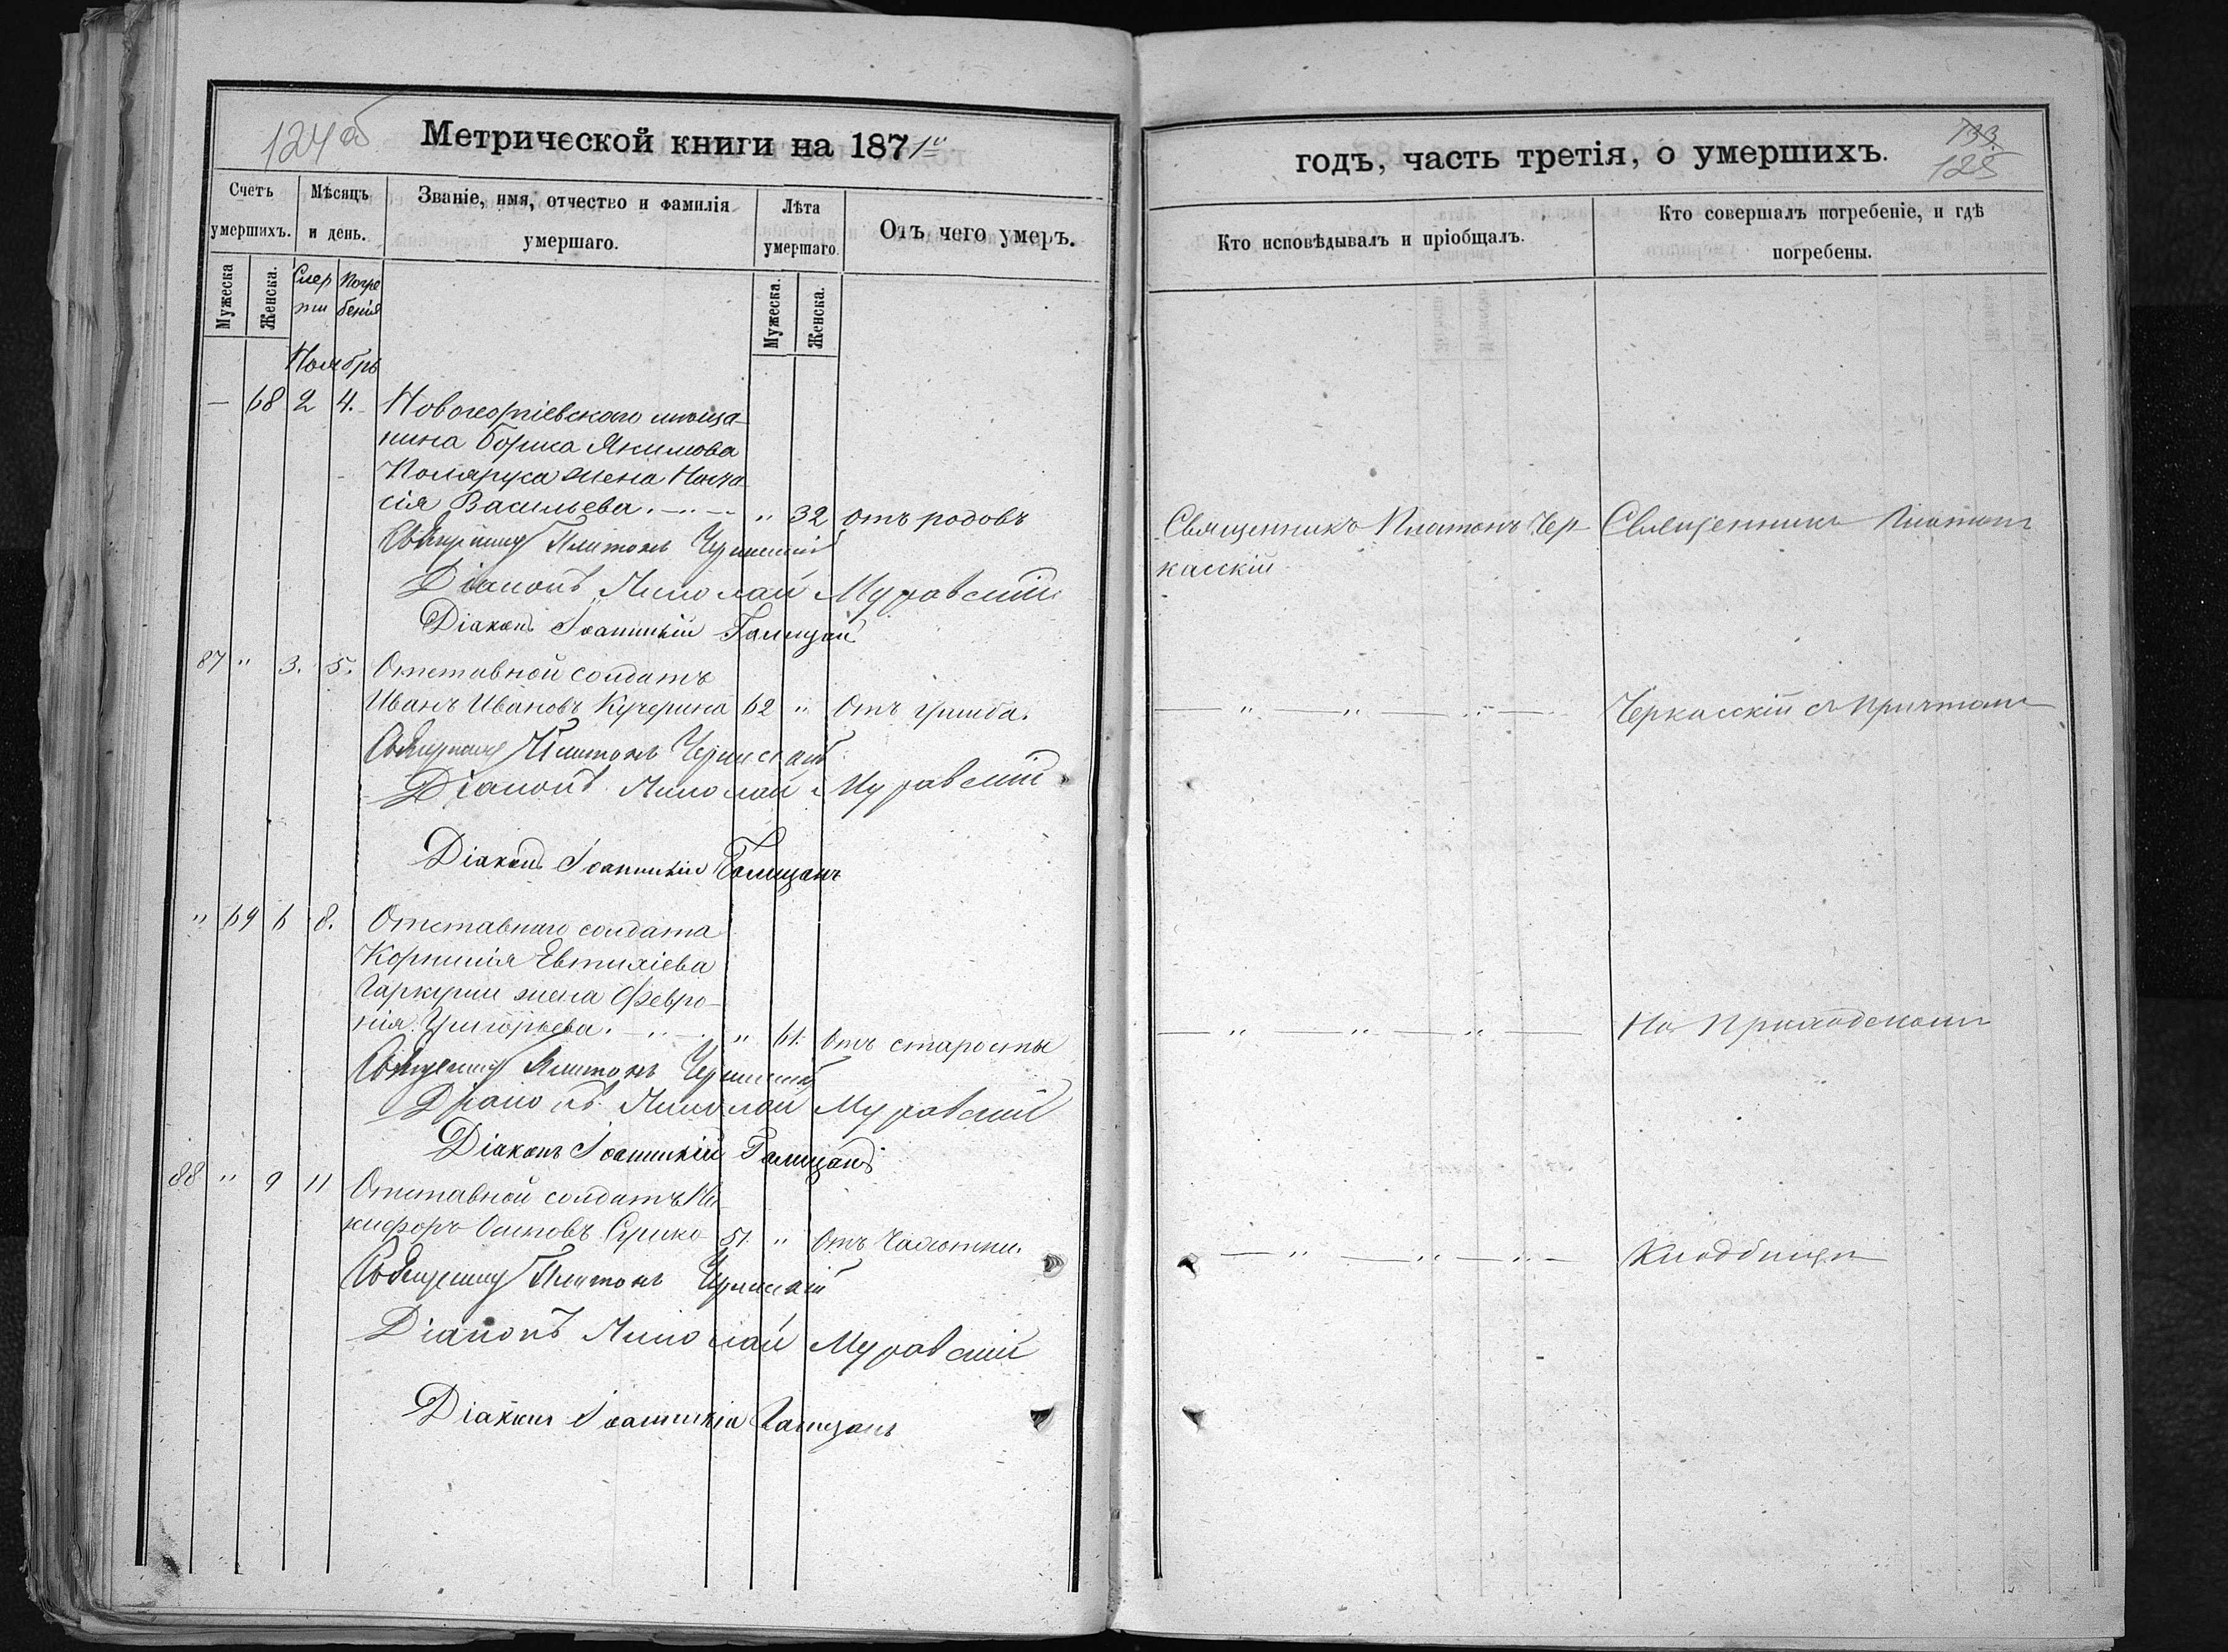 124об
Метрической книги на 1871й
Счетъ умершихъ.
Мѣсяцъ и день.
Званіе, имя, отчество и фамилія умершаго.
Лѣта умершаго.
Отъ чего умеръ.
Мужеска
Женска.
Смерти
Погребенія
Мужеска.
Женска.
Ноябрь
— 68 2 4. Новогеоргіевскаго мѣща-
нина Бориса Якимова
Коляруса жена Наста-
сія Васильева. „ 32 отъ родовъ
Священникъ Платонъ Черкасскій
Діаконъ Николай Муравскій
Діаконъ Іоанникій Галицкій
87 „ 3. 5. Отставной солдатъ
Иванъ Ивановъ Кучерина 62 „ Отъ ушиба.
Священникъ Платонъ Черкасскій
Діаконъ Николай Муравскій
Діаконъ Іоанникій
„ 69 6 8. Отставнаго солдата
Корнилія Евтихіева
жена Февро-
нія Григорьева. „ 61. Отъ старости
Священникъ Платонъ Черкасскій
Діаконъ Николай Муравскій
Діаконъ Іоанникій
88 „ 9 11 Отставной солдатъ Ни-
кифоръ 51. „ Отъ Чахотки.
Священникъ Платонъ Черкасскій
Діаконъ Николай Муравскій
Діаконъ Іоанникій
годъ, часть третія, о умершихъ.
133.
125
Кто исповѣдывалъ и пріобщалъ.
Кто совершалъ погребеніе, и гдѣ погребены.
Священникъ Платонъ Чер-
касскій
Священникъ Платонъ
— „ — „ — „ — Черкасскій съ Причтомъ
— „ — „ — „ — На Приходскомъ
— „ — „ — „ — Кладбищѣ